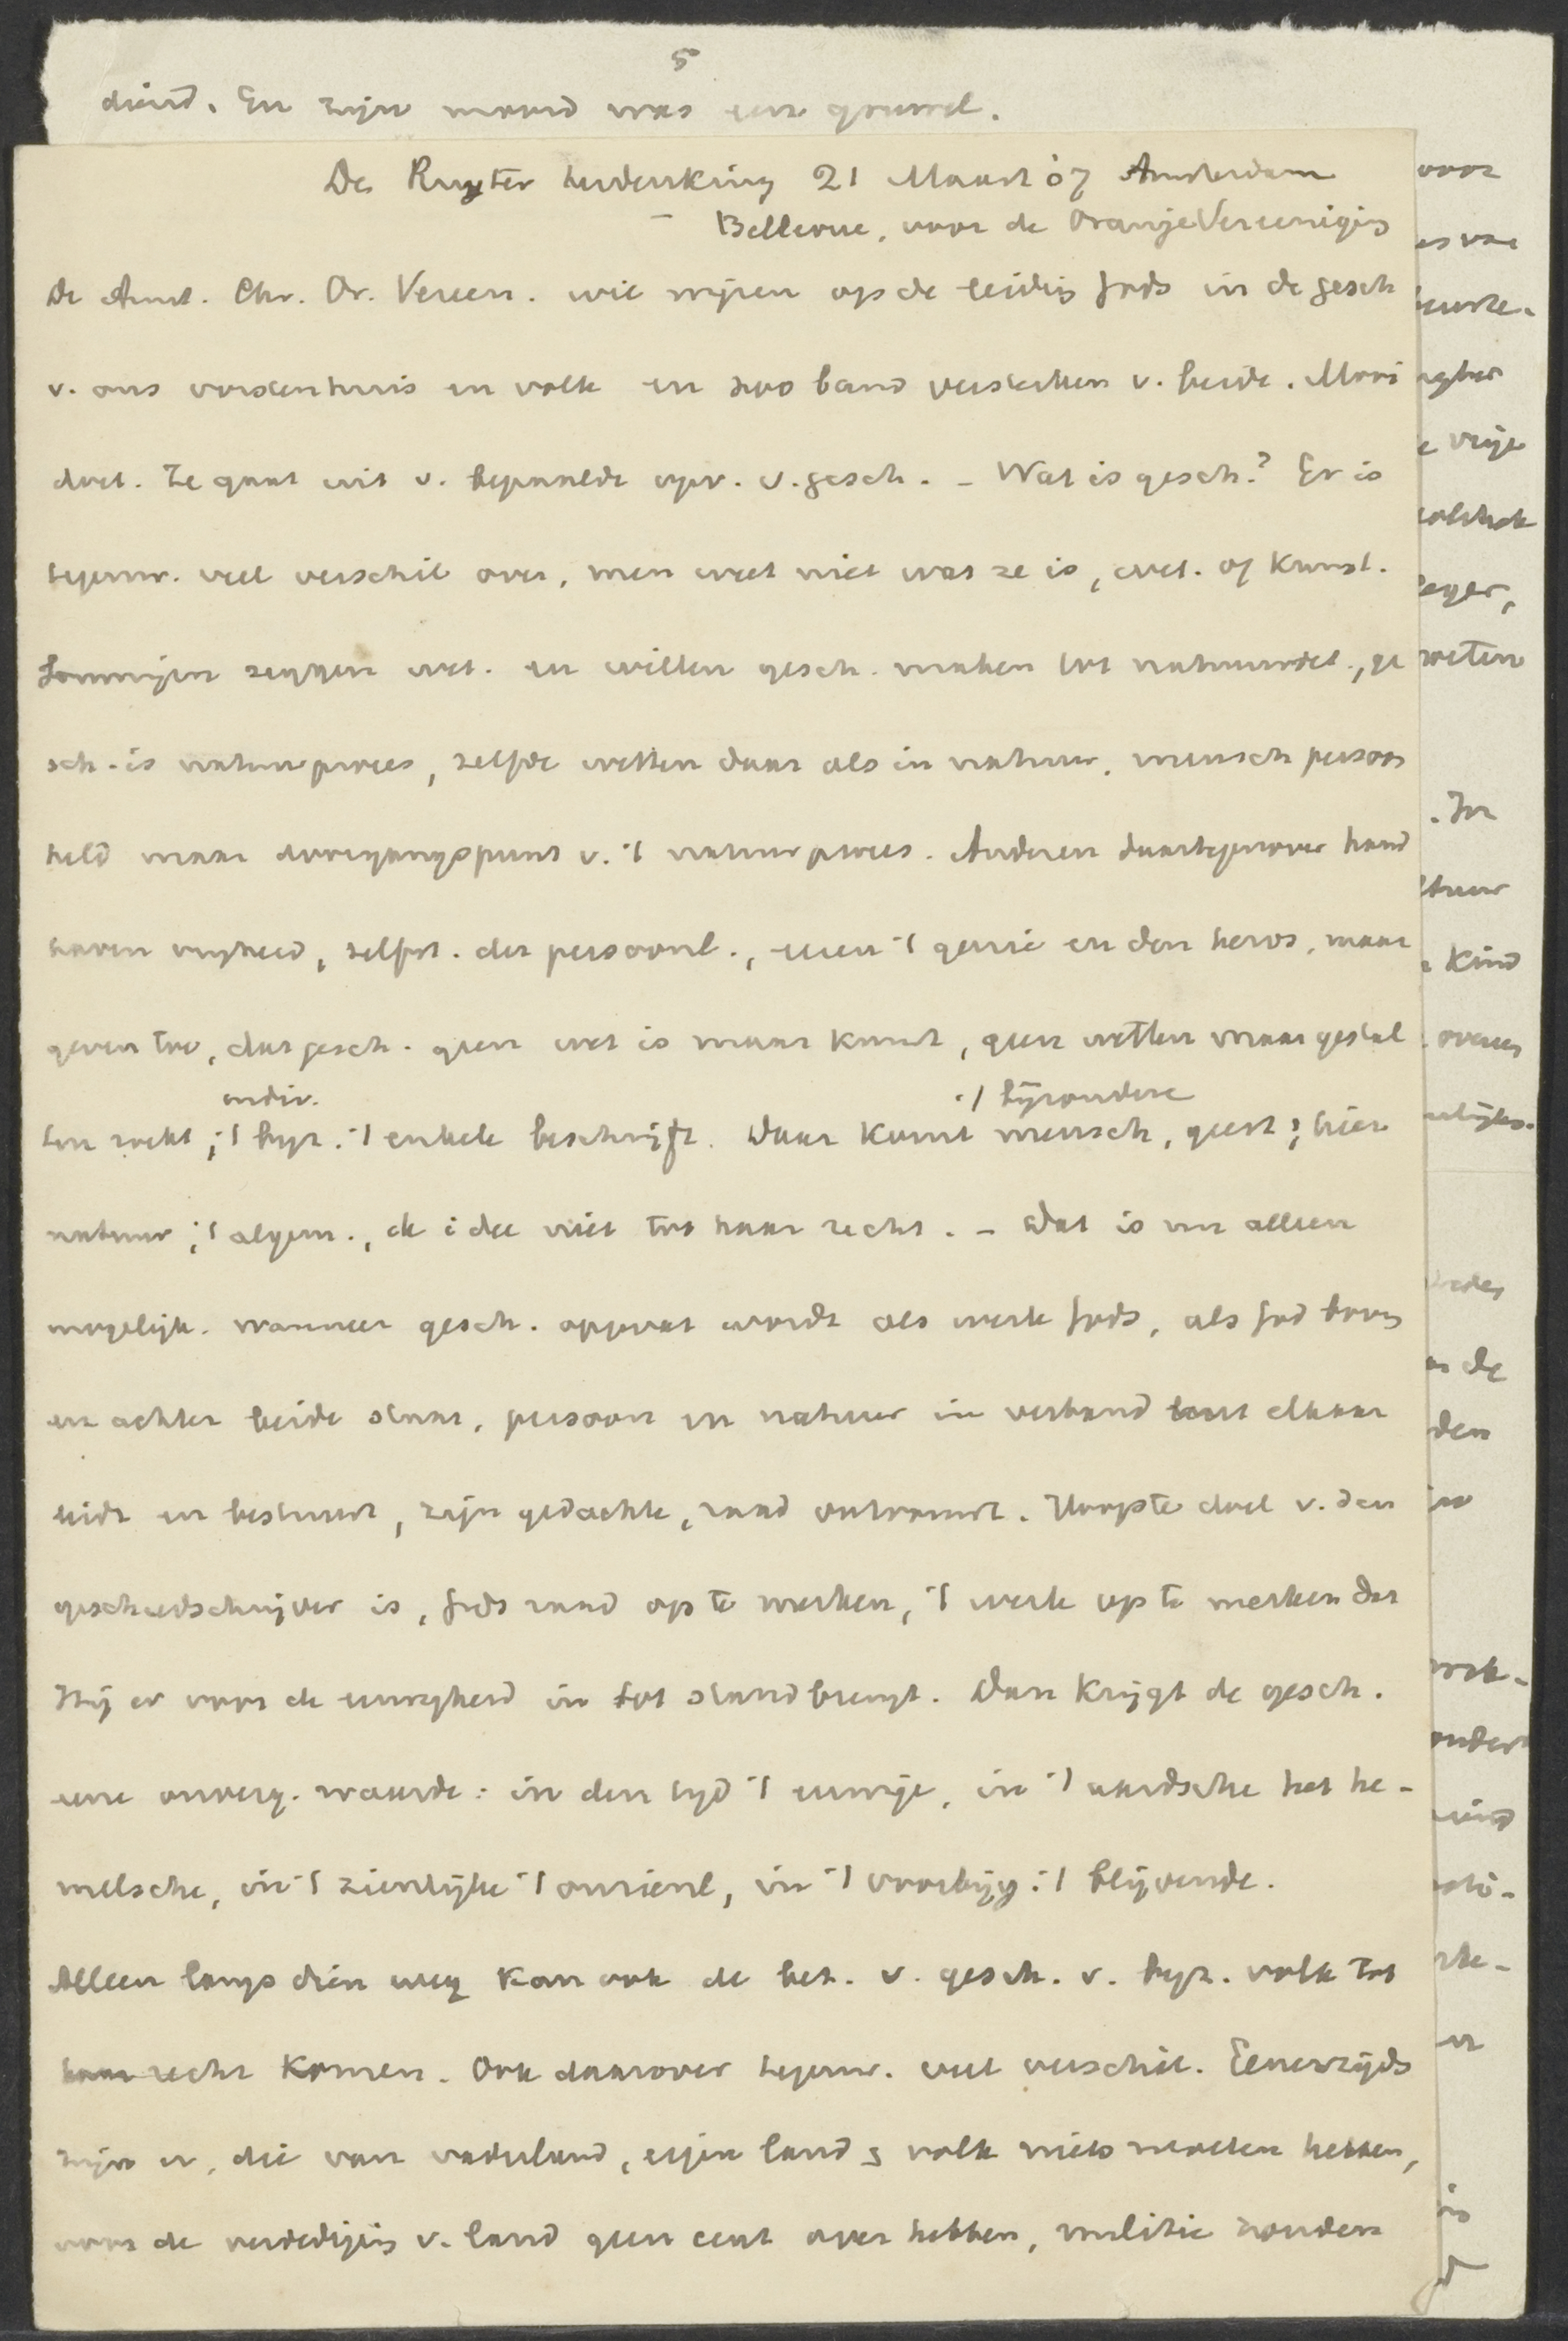 5
diend. En zijn moord was een gruwel.
De Ruyter herdenking 21 Maart 07 Amsterdam
Bellevue, voor de OranjeVereenigig
De Amst. Chr. Or. Vereen. wil wijzen op de leidig Gods in de gesch
v. ons vorstenhuis en volk en zoo band versterken v. beide. Mooi
doel. Ze gaat uit v. bepaalde opv. v. gesch. - Wat is gesch.? Er is
tegenw. veel verschil over, men weet niet wat ze is, wet. of kunst.
Sommigen zeggen wet. en willen gesch. maken tot natuurwet., ge
sch. is natuurproces, zelfde wetten daar als in natuur, mensch persoon
held maar doorgangspunt v. 't natuurproces. Anderen daartegenover hand
haven vrijheid, zelfst. der persoonl., eeren 't genie en den heros, maar
geven toe, dat gesch. geen wet is maar kunst, geen wetten maar gestal
indiv. 't bijzondere
ten zoekt, 't byz. 't enkele beschrijft. Daar komt mensch, geest, hier
natuur, 't algem., de idee niet tot haar recht. - Dat is nu alleen
mogelijk. wanneer gesch. opgevat wordt als werk Gods, als God boven
en achter beide staat, persoon en natuur in verband tot elkaar
leidt en bestuurt, zijn gedachte, raad ontvouwt. Hoogste doel v. den
geschiedschrijver is, Gods raad op te merken, 't werk op te merken dat
Hij er voor de eeuwigheid in tot stand brengt. Dan krijgt de gesch.
eene onverg. waarde: in den tijd 't eeuwige, in 't aardsche het he-
melsche, in 't zienlijke 't onzienl, in 't voorbijg. 't blijvende.
Alleen langs dien weg kan ook de bet. v. gesch. v. byz. volk tot
haar recht komen. Ook daarover tegenw. veel verschil. Eenerzijds
zijn er, die van vaderland, eigen land & volk niets moeten hebben,
voor de verdedigig v. land geen cent over hebben, militie zouden
voor
vrije
weten
. In
kind
de
den